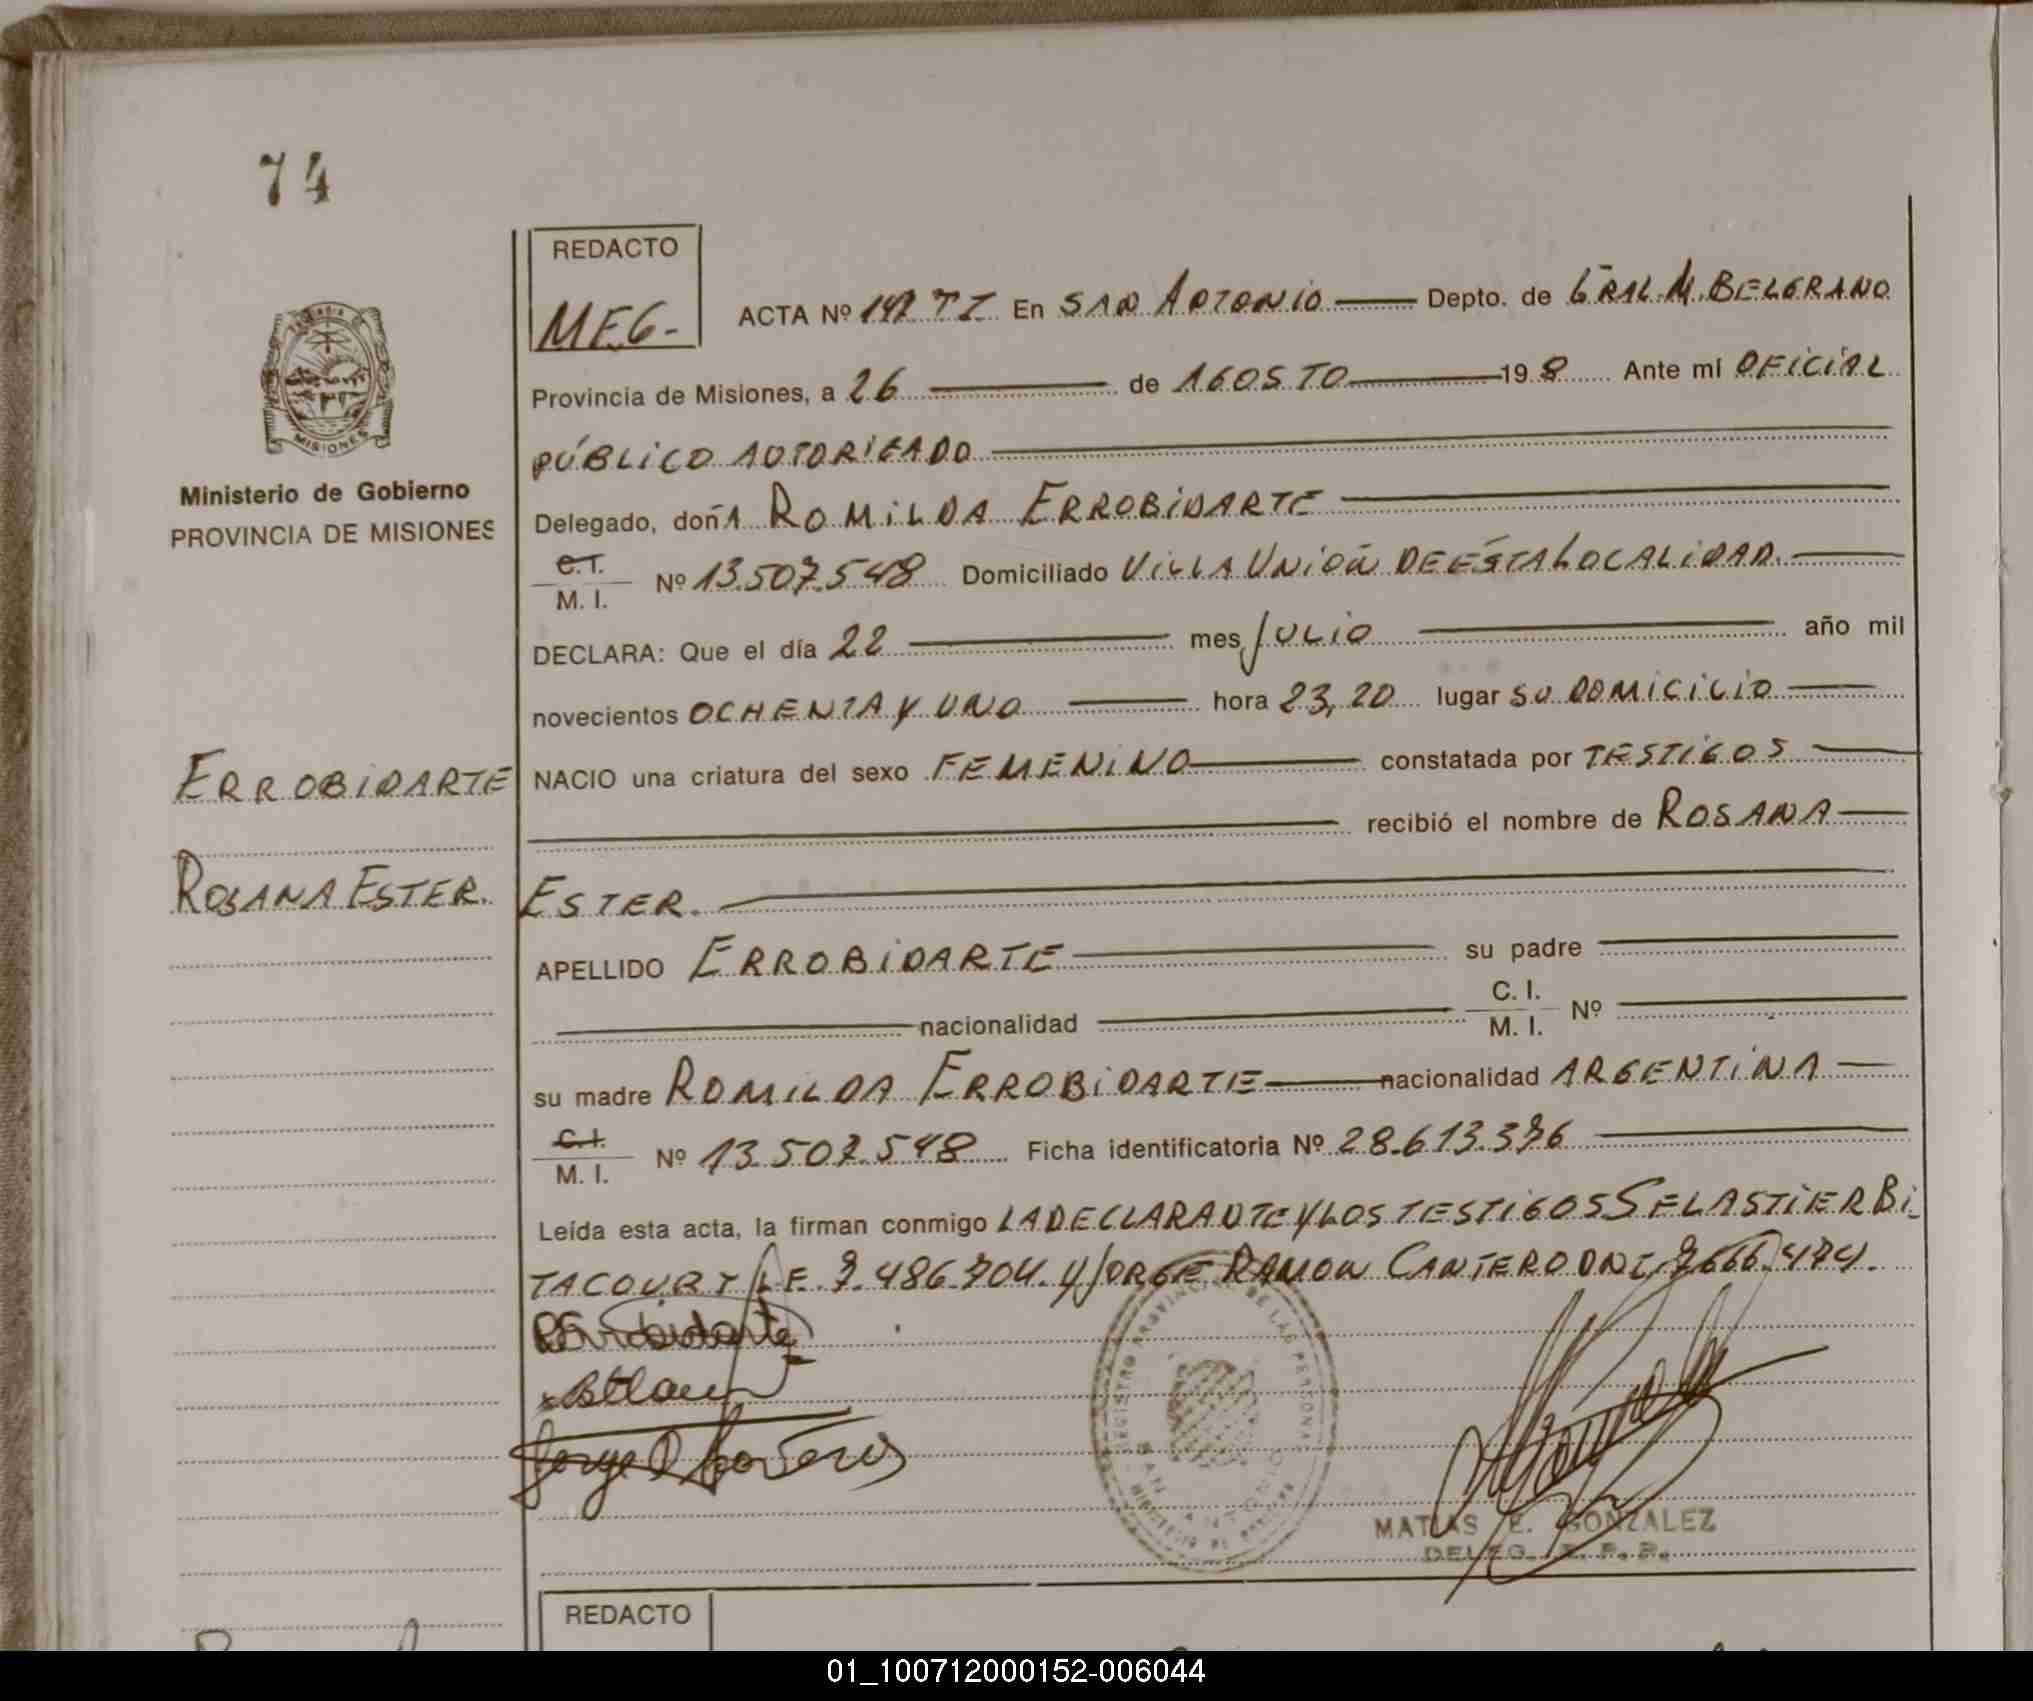 74
REDACTO
MEG-
ACTA Nº 147 TI En SAN ANTONIO Depto. de GRAL M. BELGRANO
Provincia de Misiones, a 26 de AGOSTO 198 Ante mí OFICIAL
PÚBLICO AUTORIZADO
Ministerio de Gobierno
PROVINCIA DE MISIONES
MISIONES
Delegado, doñA ROMILDA ERROBIDARTE
C.I.
M. I. Nº 13.507.548 Domiciliado VILLA UNIÓN DE ÉSTA LOCALIDAD.
DECLARA: Que el día 22 mes JULIO año mil
novecientos OCHENTA Y UNO hora 23,20 lugar SU DOMICILIO
ERROBIDARTE
NACIO una criatura del sexo FEMENINO constatada por TESTIGOS
recibió el nombre de ROSANA
ROSANA ESTER.
ESTER.
APELLIDO ERROBIDARTE su padre
nacionalidad C. I.
M. I. Nº
su madre ROMILDA ERROBIDARTE nacionalidad ARGENTINA
C.I.
M. I. Nº 13.507.548 Ficha identificatoria Nº 28.613.376
Leída esta acta, la firman conmigo LA DECLARANTE Y LOS TESTIGOS SELASTIER BI-
TACOURT L.E. 7.486.704. Y JORGE RAMON CANTERO DNI 7.666.474.
REGISTRO PROVINCIAL DE LAS PERSONAS
SAN ANTONIO
MATIAS E. GONZALEZ
DELEG. R. P. P.
REDACTO
01_100712000152-006044